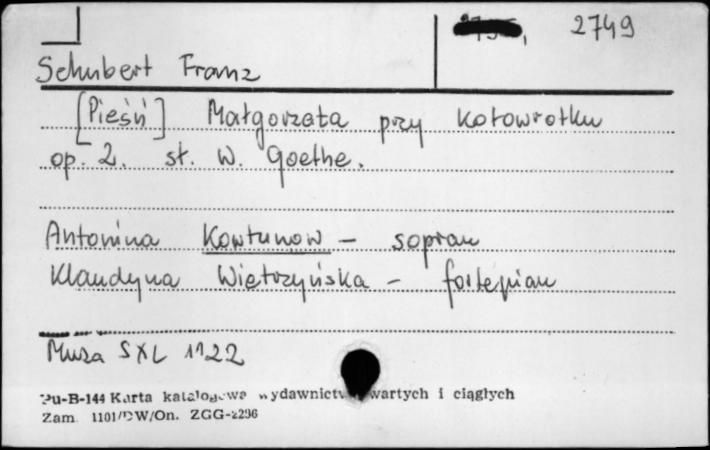 2749
Schubert Franz
[Pieśń] Małgorzata przy kołowrotku
op. 2. sł. W. Goethe.
Antonina Kowtunow - sopran
Klaudyna Wietrzyńska - fortepian
Muza SXL 1122
Pu-B-144 Karta katalogowa wydawnictw zwartych i ciągłych
Zam. 1101/DW/On. ZGG-2296